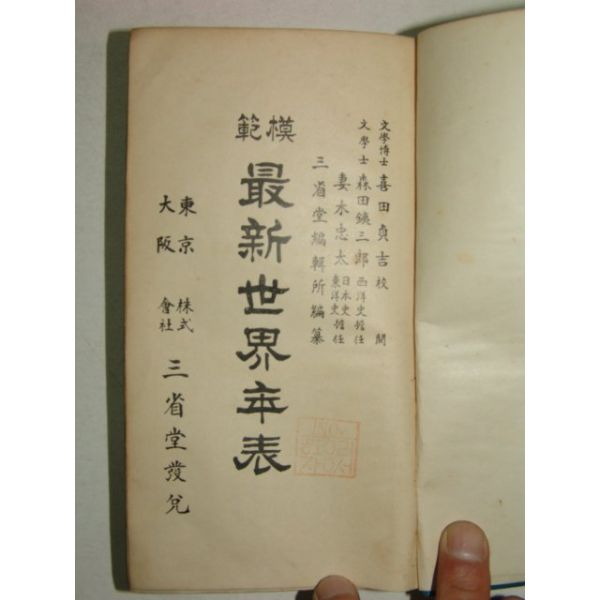 文學博士 喜田貞吉 校閱
文學士 森田鐵三郎 西洋史擔任
妻木忠太 日本史東洋史擔任
三省堂編輯所編纂
模範
最新世界年表
東京
大阪
株式會社 三省堂發兌